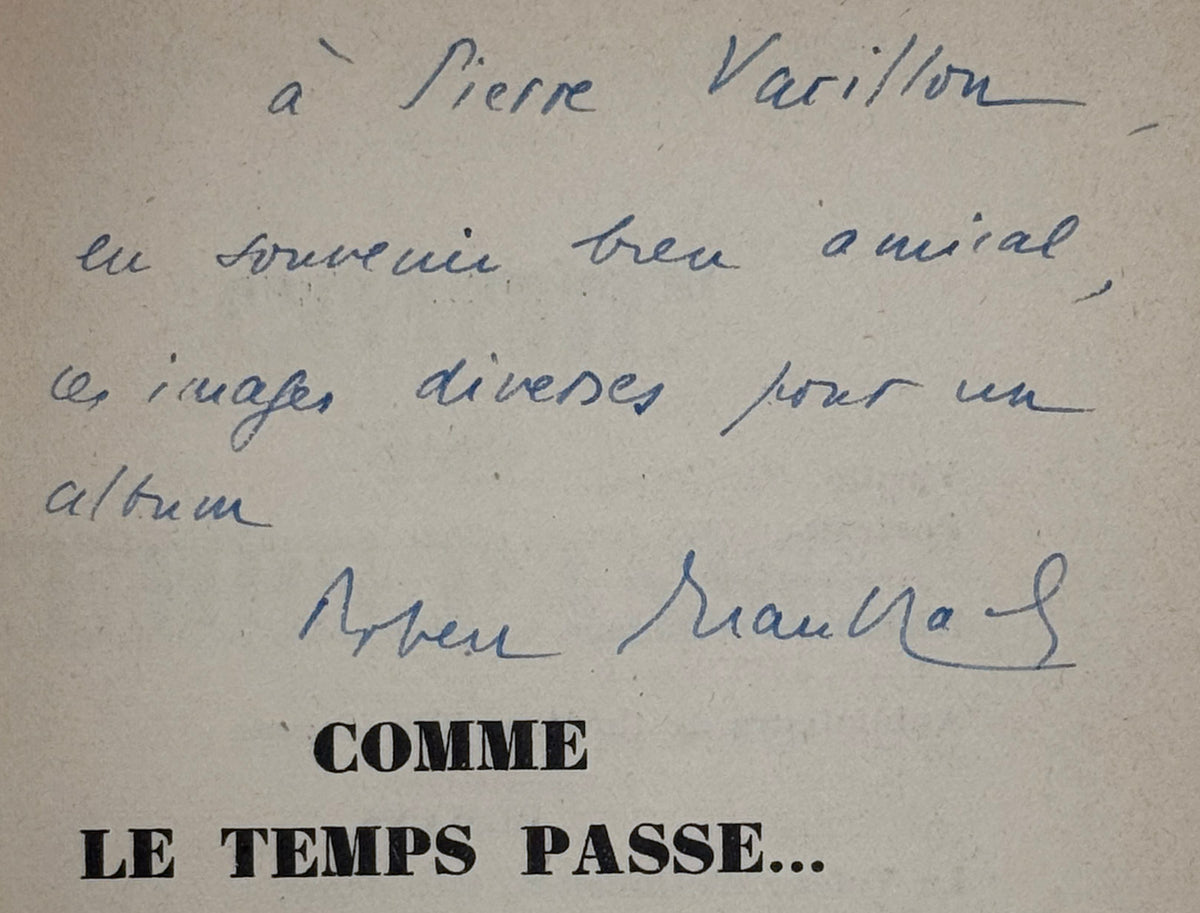 à Pierre Varillon,
en souvenir bien amical,
ces images diverses pour un
album
Robert Brasillach
COMME
LE TEMPS PASSE...